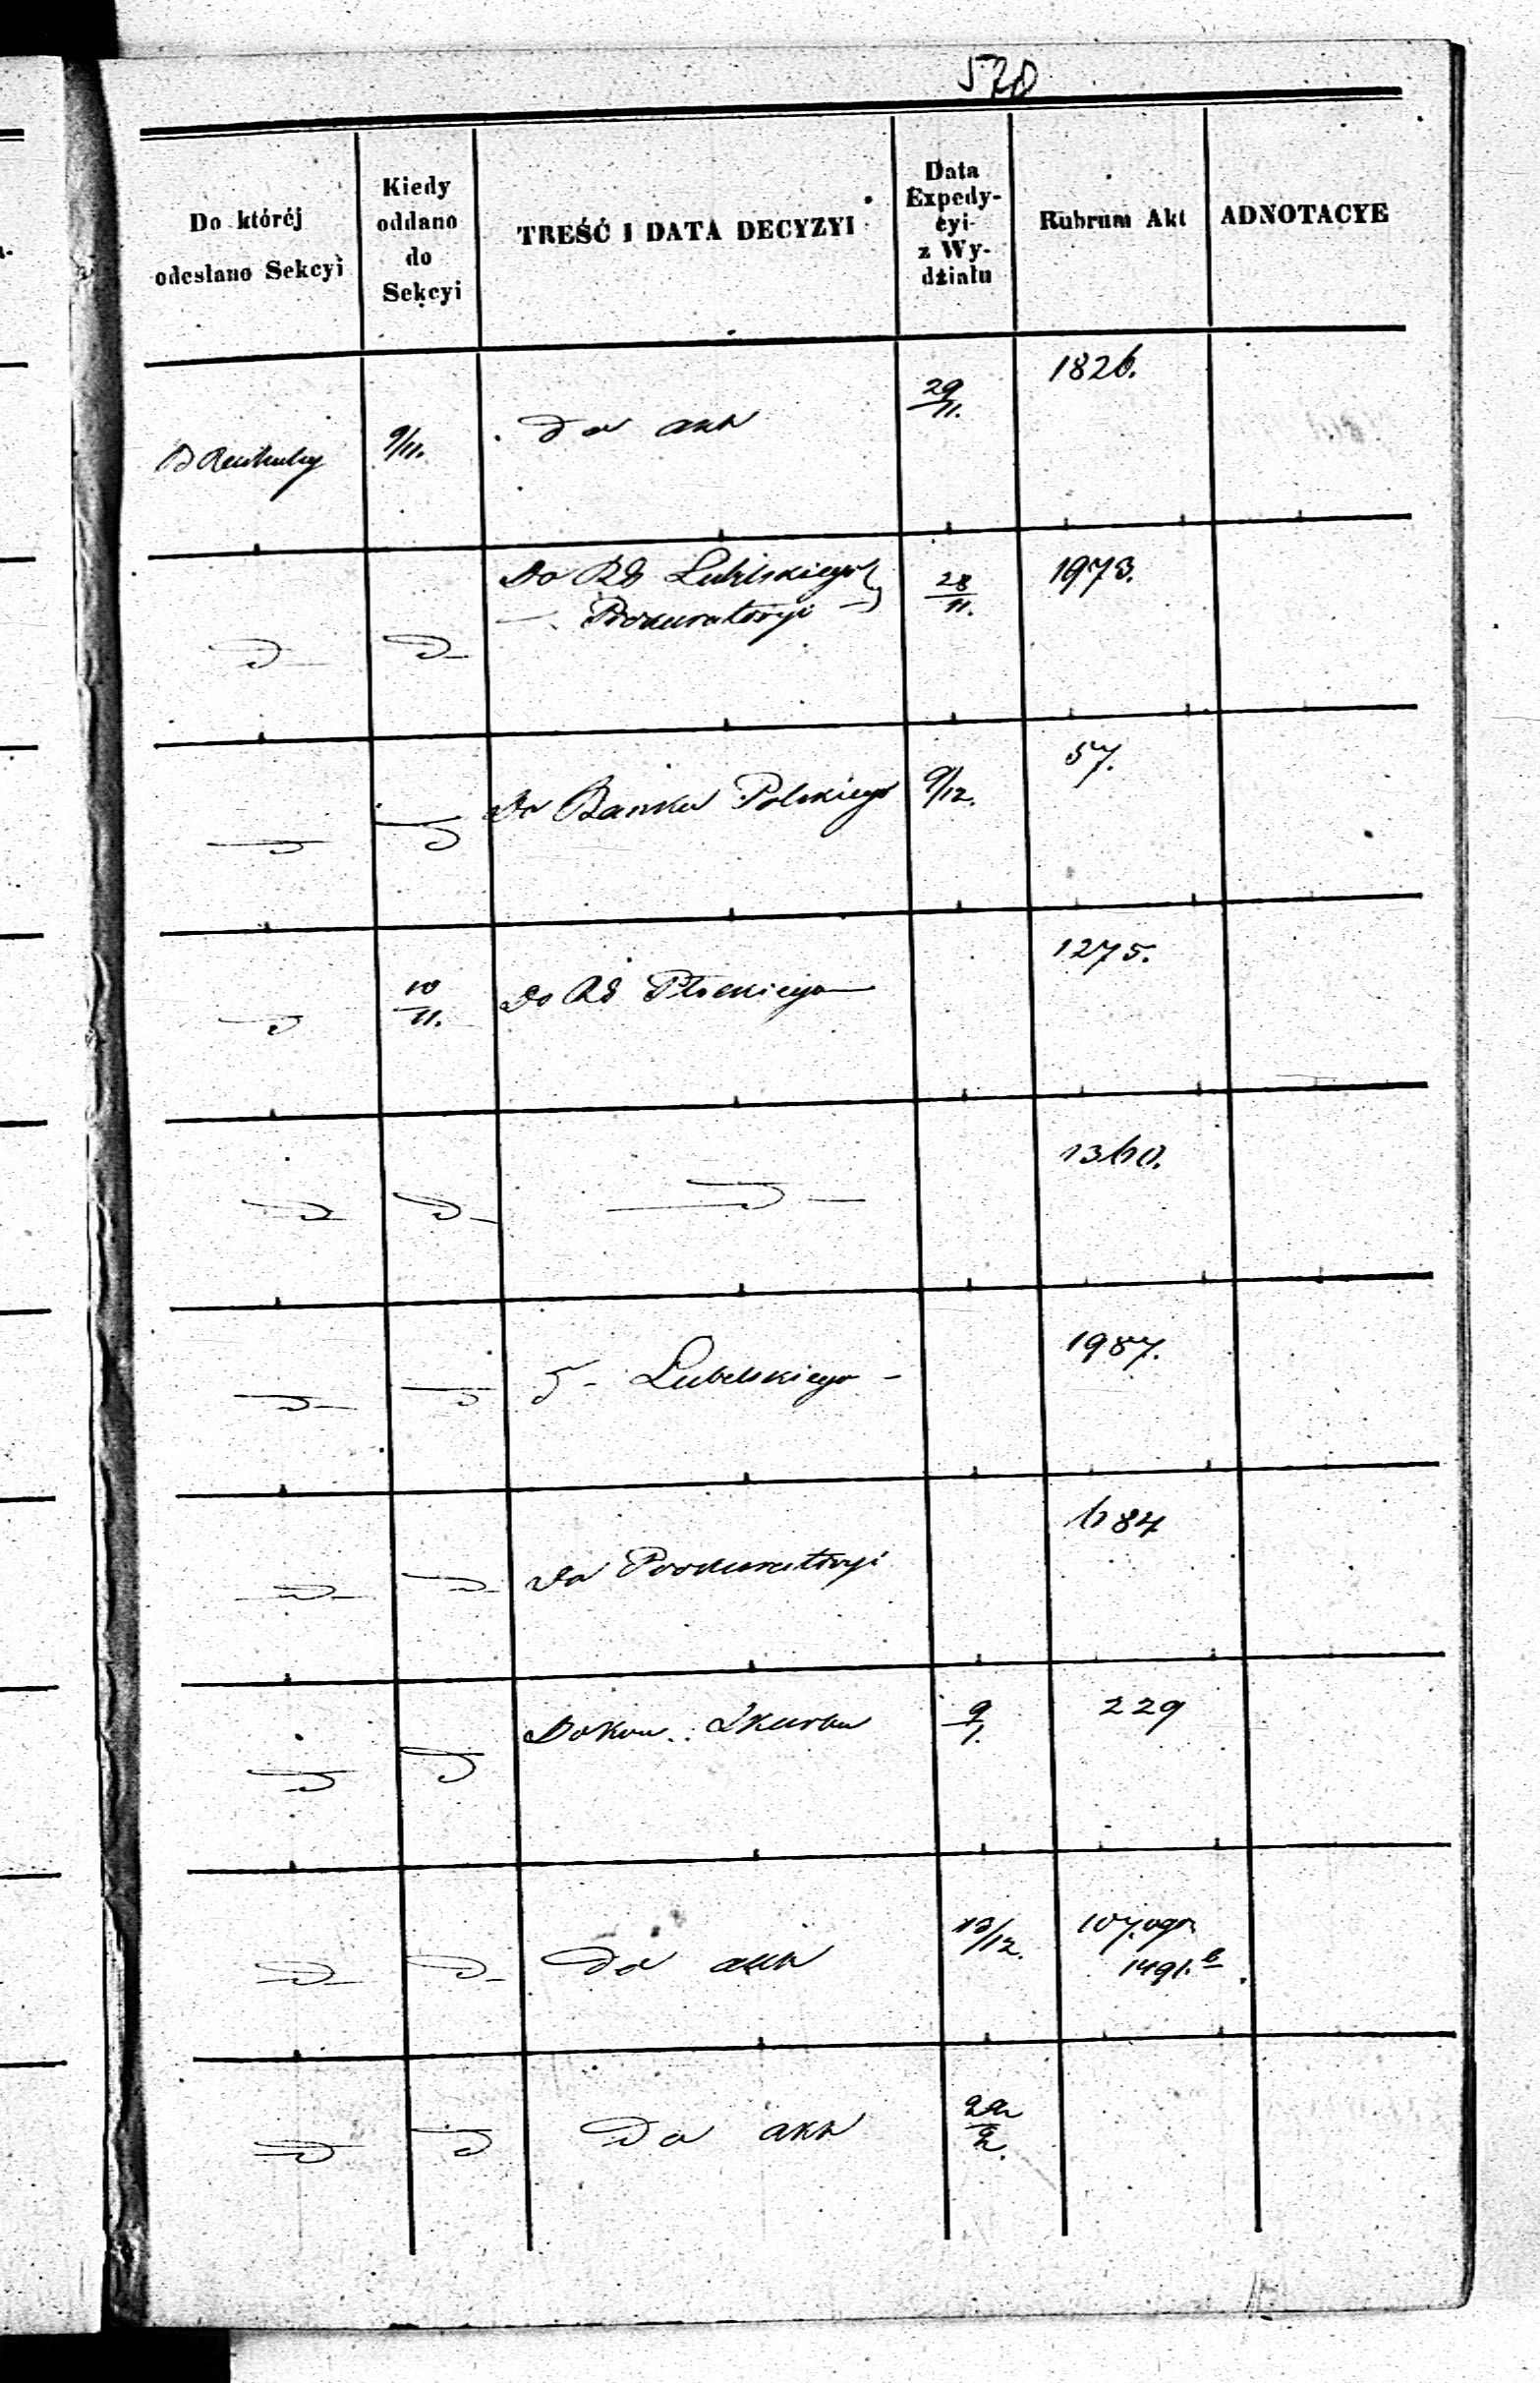 570
Do której odesłano Sekcyi
Kiedy oddano do Sekcyi
TREŚĆ I DATA DECYZYI
Data Expedy-cyi z Wy-działu
Rubrum Akt
ADNOTACYE
9/11. do akt 29/11. 1826.
Do Rd Lubelskiego
— Prokuratoryi — 28/11. 1973.
Do Banku Polskiego 9/12. 57.
10/11. Do Rd Płockiego 1275.
1360.
Lubelskiego 1987.
Do Prokuratoryi 684
Skarbu 9/1. 229
Do akt 13/12. 107. ogn
1491. b
Do akt